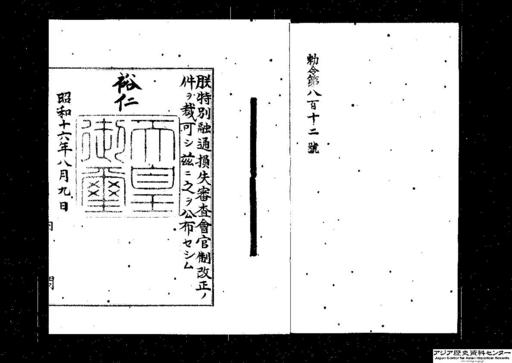 勅令第八百十二號
朕特別融通損失審査會官制改正ノ
件ヲ裁可シ茲ニ之ヲ公布セシム
裕仁
天皇
御璽
昭和十六年八月九日
アジア歴史資料センター
Japan Center for Asian Historical Records